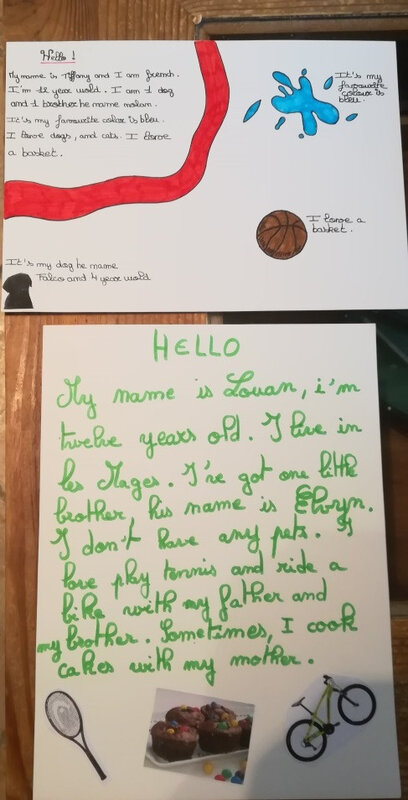 Hello !
My name is Tiffany and I am french.
I'm 11 year wold. I am 1 dog
and 1 brother he name molan.
It's my favourite color is bleu.
I love dogs, and cats. I love
a basket.
It's my
favourite
colour is
bleu.
I love a
basket.
It's my dog he name
Falco and 4 year wold
HELLO
My name is Louan, i'm
twelve years old. I live in
les Mages. I've got one little
brother, his name is Elwyn.
I don't have any pets. I
love play tennis and ride a
bike with my father and
my brother. Sometimes, I cook
cakes with my mother.